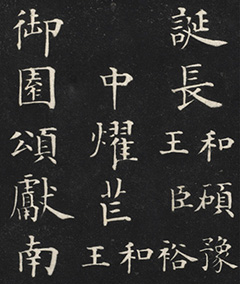 誕長和碩豫
王臣裕
中耀芒和
王
御園頌獻南